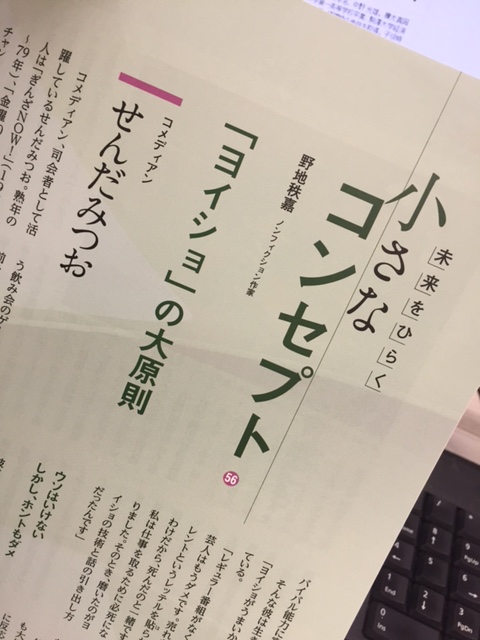 未来をひらく
小さな
コンセプト
56
野地秩嘉 ノンフィクション作家
「ヨイショ」の大原則
コメディアン
せんだみつお
コメディアン、司会者として活
躍しているせんだみつお。熟年の
人は「ぎんざNOW!」(19
〜79年)、「金曜10
チャン
う飲み会のゲ
バイバル能力に
そんな彼は生
「ヨイショがうまいか
ている。
「レギュラー番組がなく
芸人はもうダメです。売れ
レントというレッテルを貼ら
わけだから、死んだのと一緒です
私は仕事を取るために必死にな
りました。そのとき、磨いたのがヨ
イショの技術と話の引き出し方
だったんです」
ウソはいけない
しかし、ホントもダメ